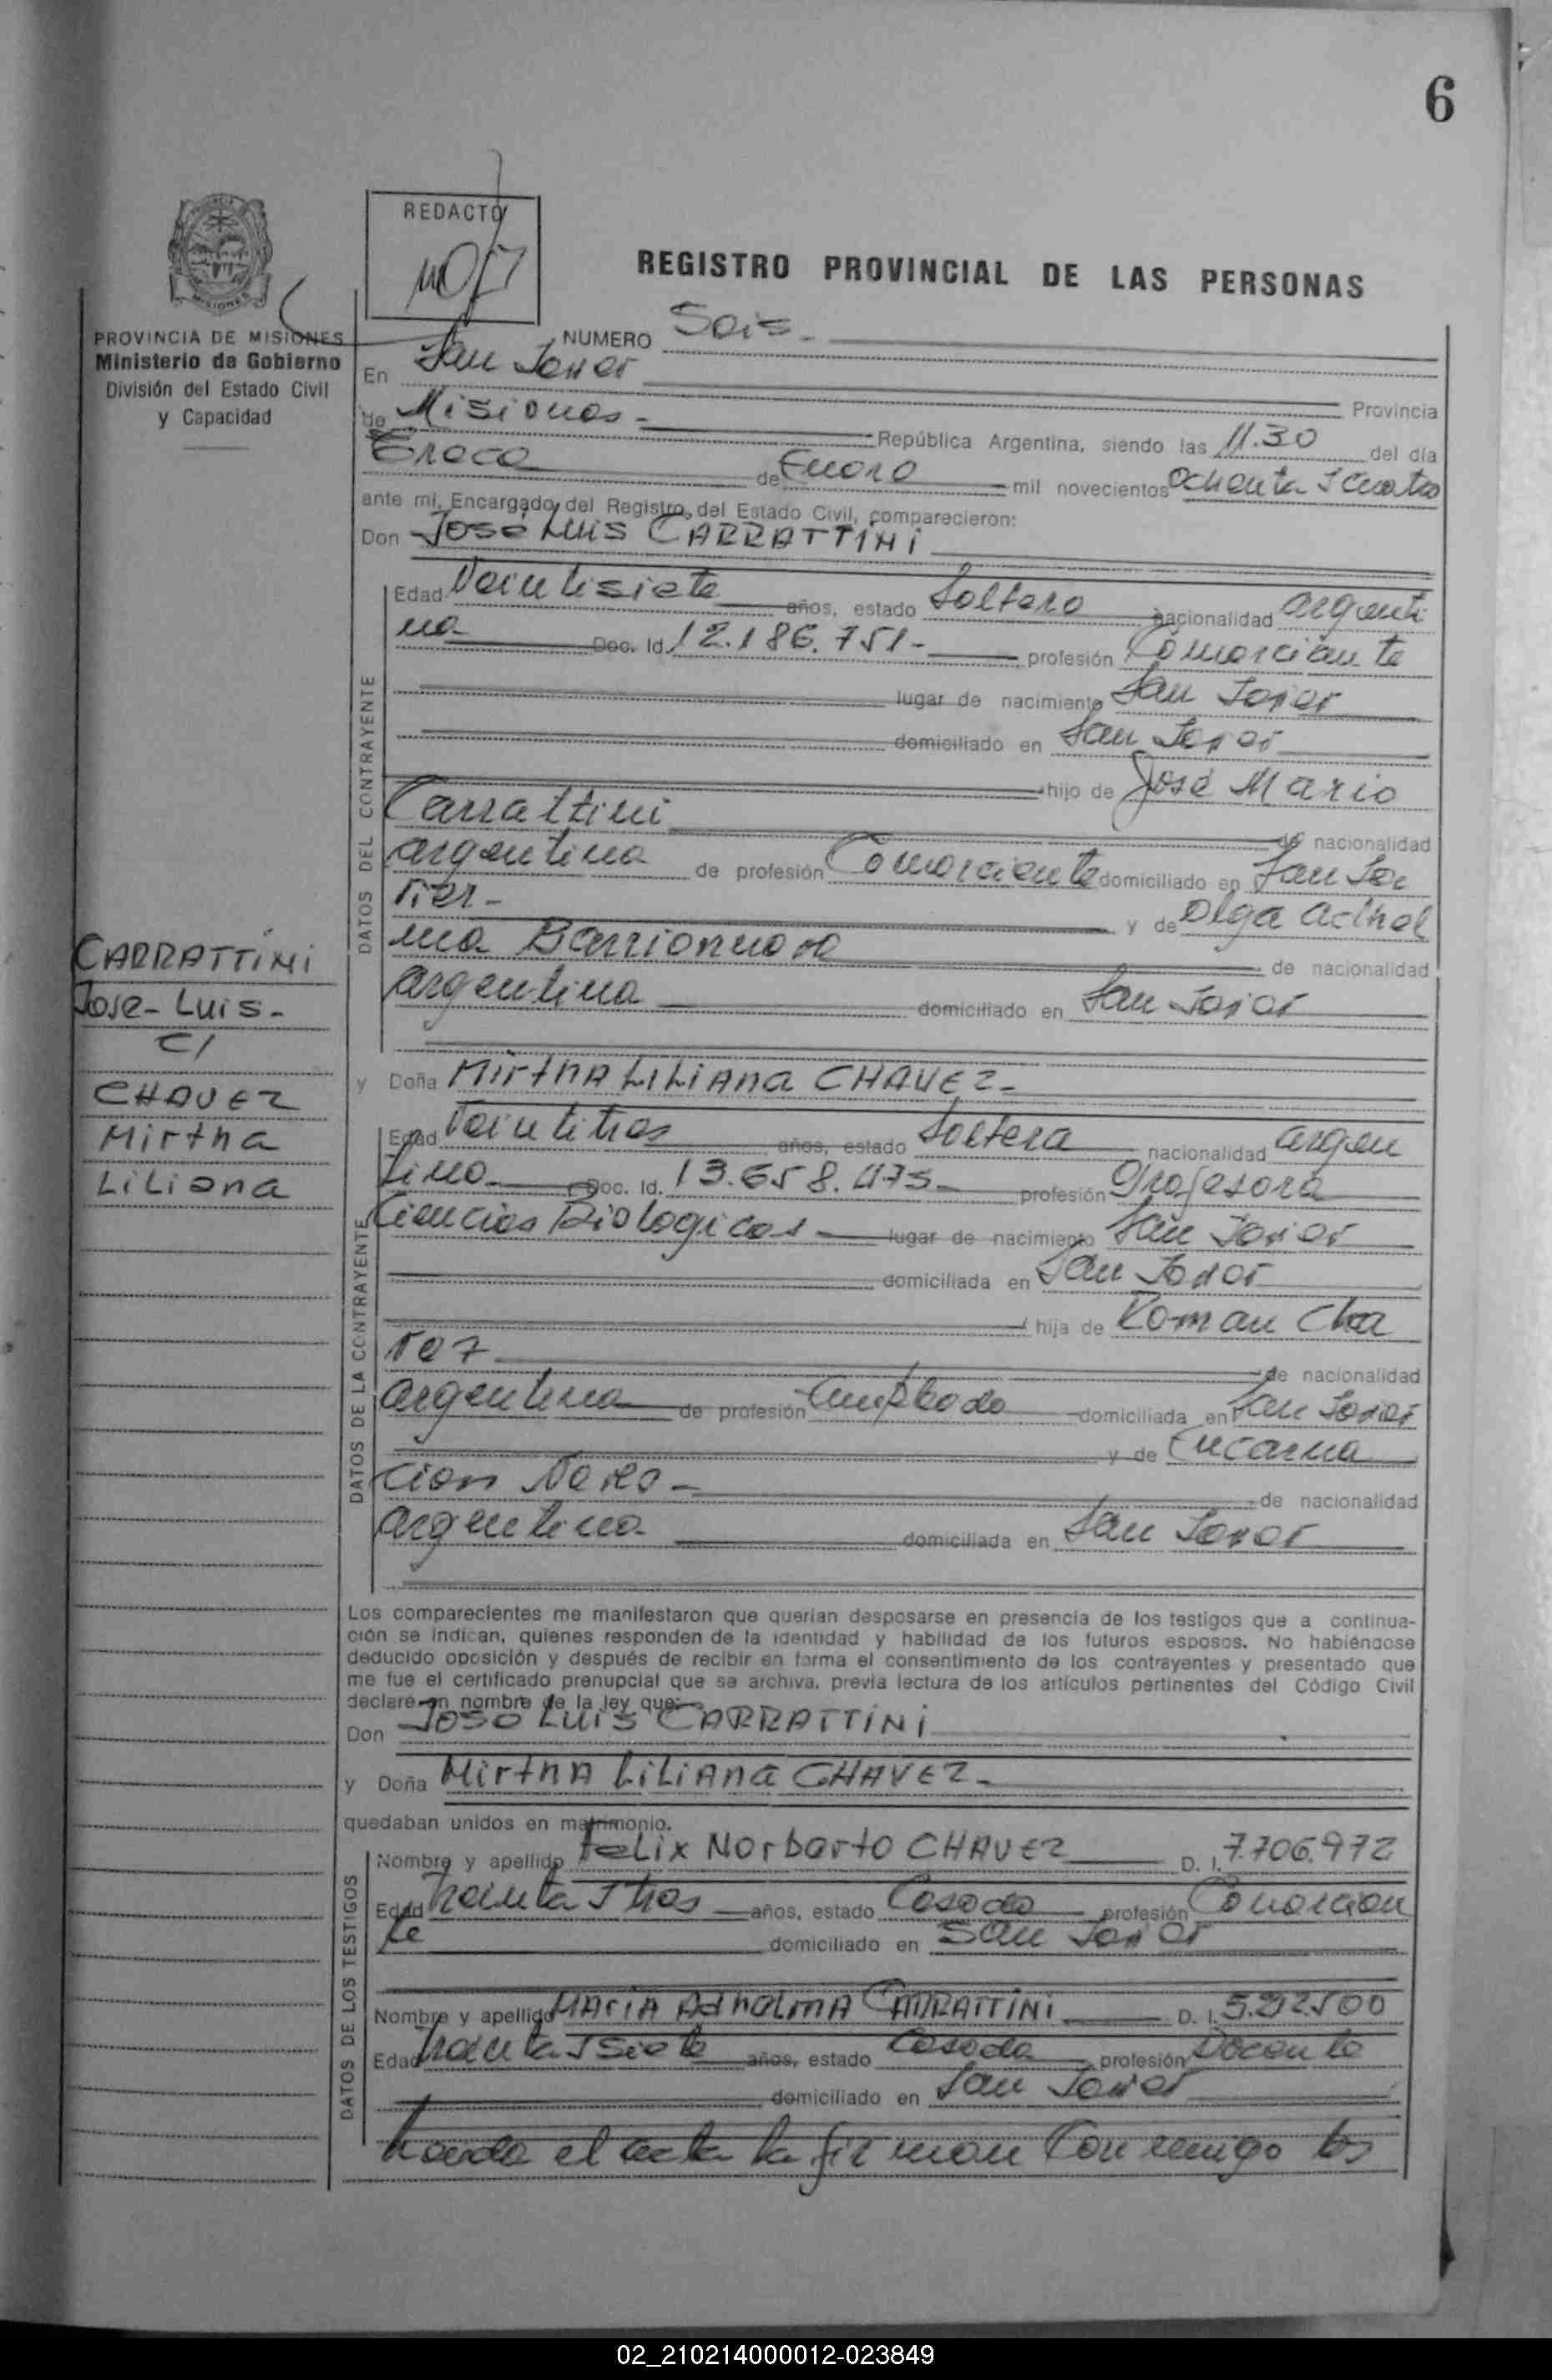 6
REDACTO
REGISTRO PROVINCIAL DE LAS PERSONAS
PROVINCIA DE MISIONES
Ministerio de Gobierno
División del Estado Civil
y Capacidad
NUMERO Seis.
En San Javier
Provincia
de Misiones - República Argentina, siendo las 11.30 del día
Trece de Enero mil novecientos Ochenta y cuatro
ante mí, Encargado del Registro del Estado Civil, comparecieron:
Don José Luis CARRATTINI
DATOS DEL CONTRAYENTE
Edad Veintisiete años, estado Soltero nacionalidad argenti
na- Doc. Id. 12.186.751- profesión Comerciante
lugar de nacimiento San Javier
domiciliado en San Javier
hijo de José Mario
Carrattini de nacionalidad
argentina de profesión Comerciante domiciliado en San Ja
vier- y de Olga Adhel
ma Barrionuevo de nacionalidad
argentina domiciliado en San Javier
CARRATTINI
Jose-Luis-
C/
CHAVEZ
Mirtha
Liliana
y Doña Mirtha Liliana CHAVEZ-
DATOS DE LA CONTRAYENTE
Edad Veintitres años, estado Soltera nacionalidad argen
tina- Doc. Id. 13.658.475- profesión Profesora
Ciencias Biologicas- lugar de nacimiento San Javier
domiciliada en San Javier
hija de Roman Cha
vez de nacionalidad
argentina de profesión Empleado domiciliada en San Javier
y de Encarna
cion - de nacionalidad
argentina domiciliada en San Javier
Los comparecientes me manifestaron que querían desposarse en presencia de los testigos que a continua-
ción se indican, quienes responden de la identidad y habilidad de los futuros esposos. No habiéndose
deducido oposición y después de recibir en forma el consentimiento de los contrayentes y presentado que
me fue el certificado prenupcial que se archiva, previa lectura de los artículos pertinentes del Código Civil
declaré en nombre de la ley que:
Don José Luis CARRATTINI
y Doña Mirtha Liliana CHAVEZ-
quedaban unidos en matrimonio.
DATOS DE LOS TESTIGOS
Nombre y apellido Felix Norberto CHAVEZ D. I. 7.706.972
Edad Treinta y tres años, estado Casado profesión Comercian
te domiciliado en San Javier
Nombre y apellido MARIA Adhelma CARRATTINI D. I. 5.212.500
Edad Treinta y siete años, estado Casada profesión Docente
domiciliado en San Javier
el acta la firman Conmigo los
02_210214000012-023849